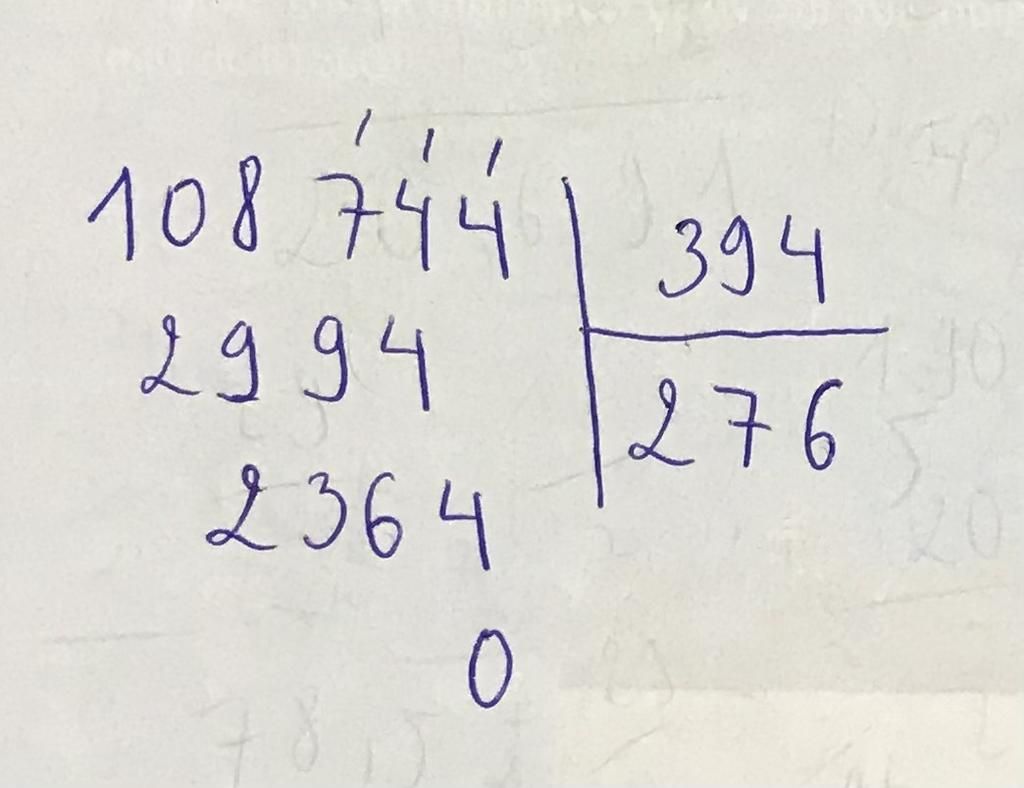 108 744 394
2994 276
2364
0